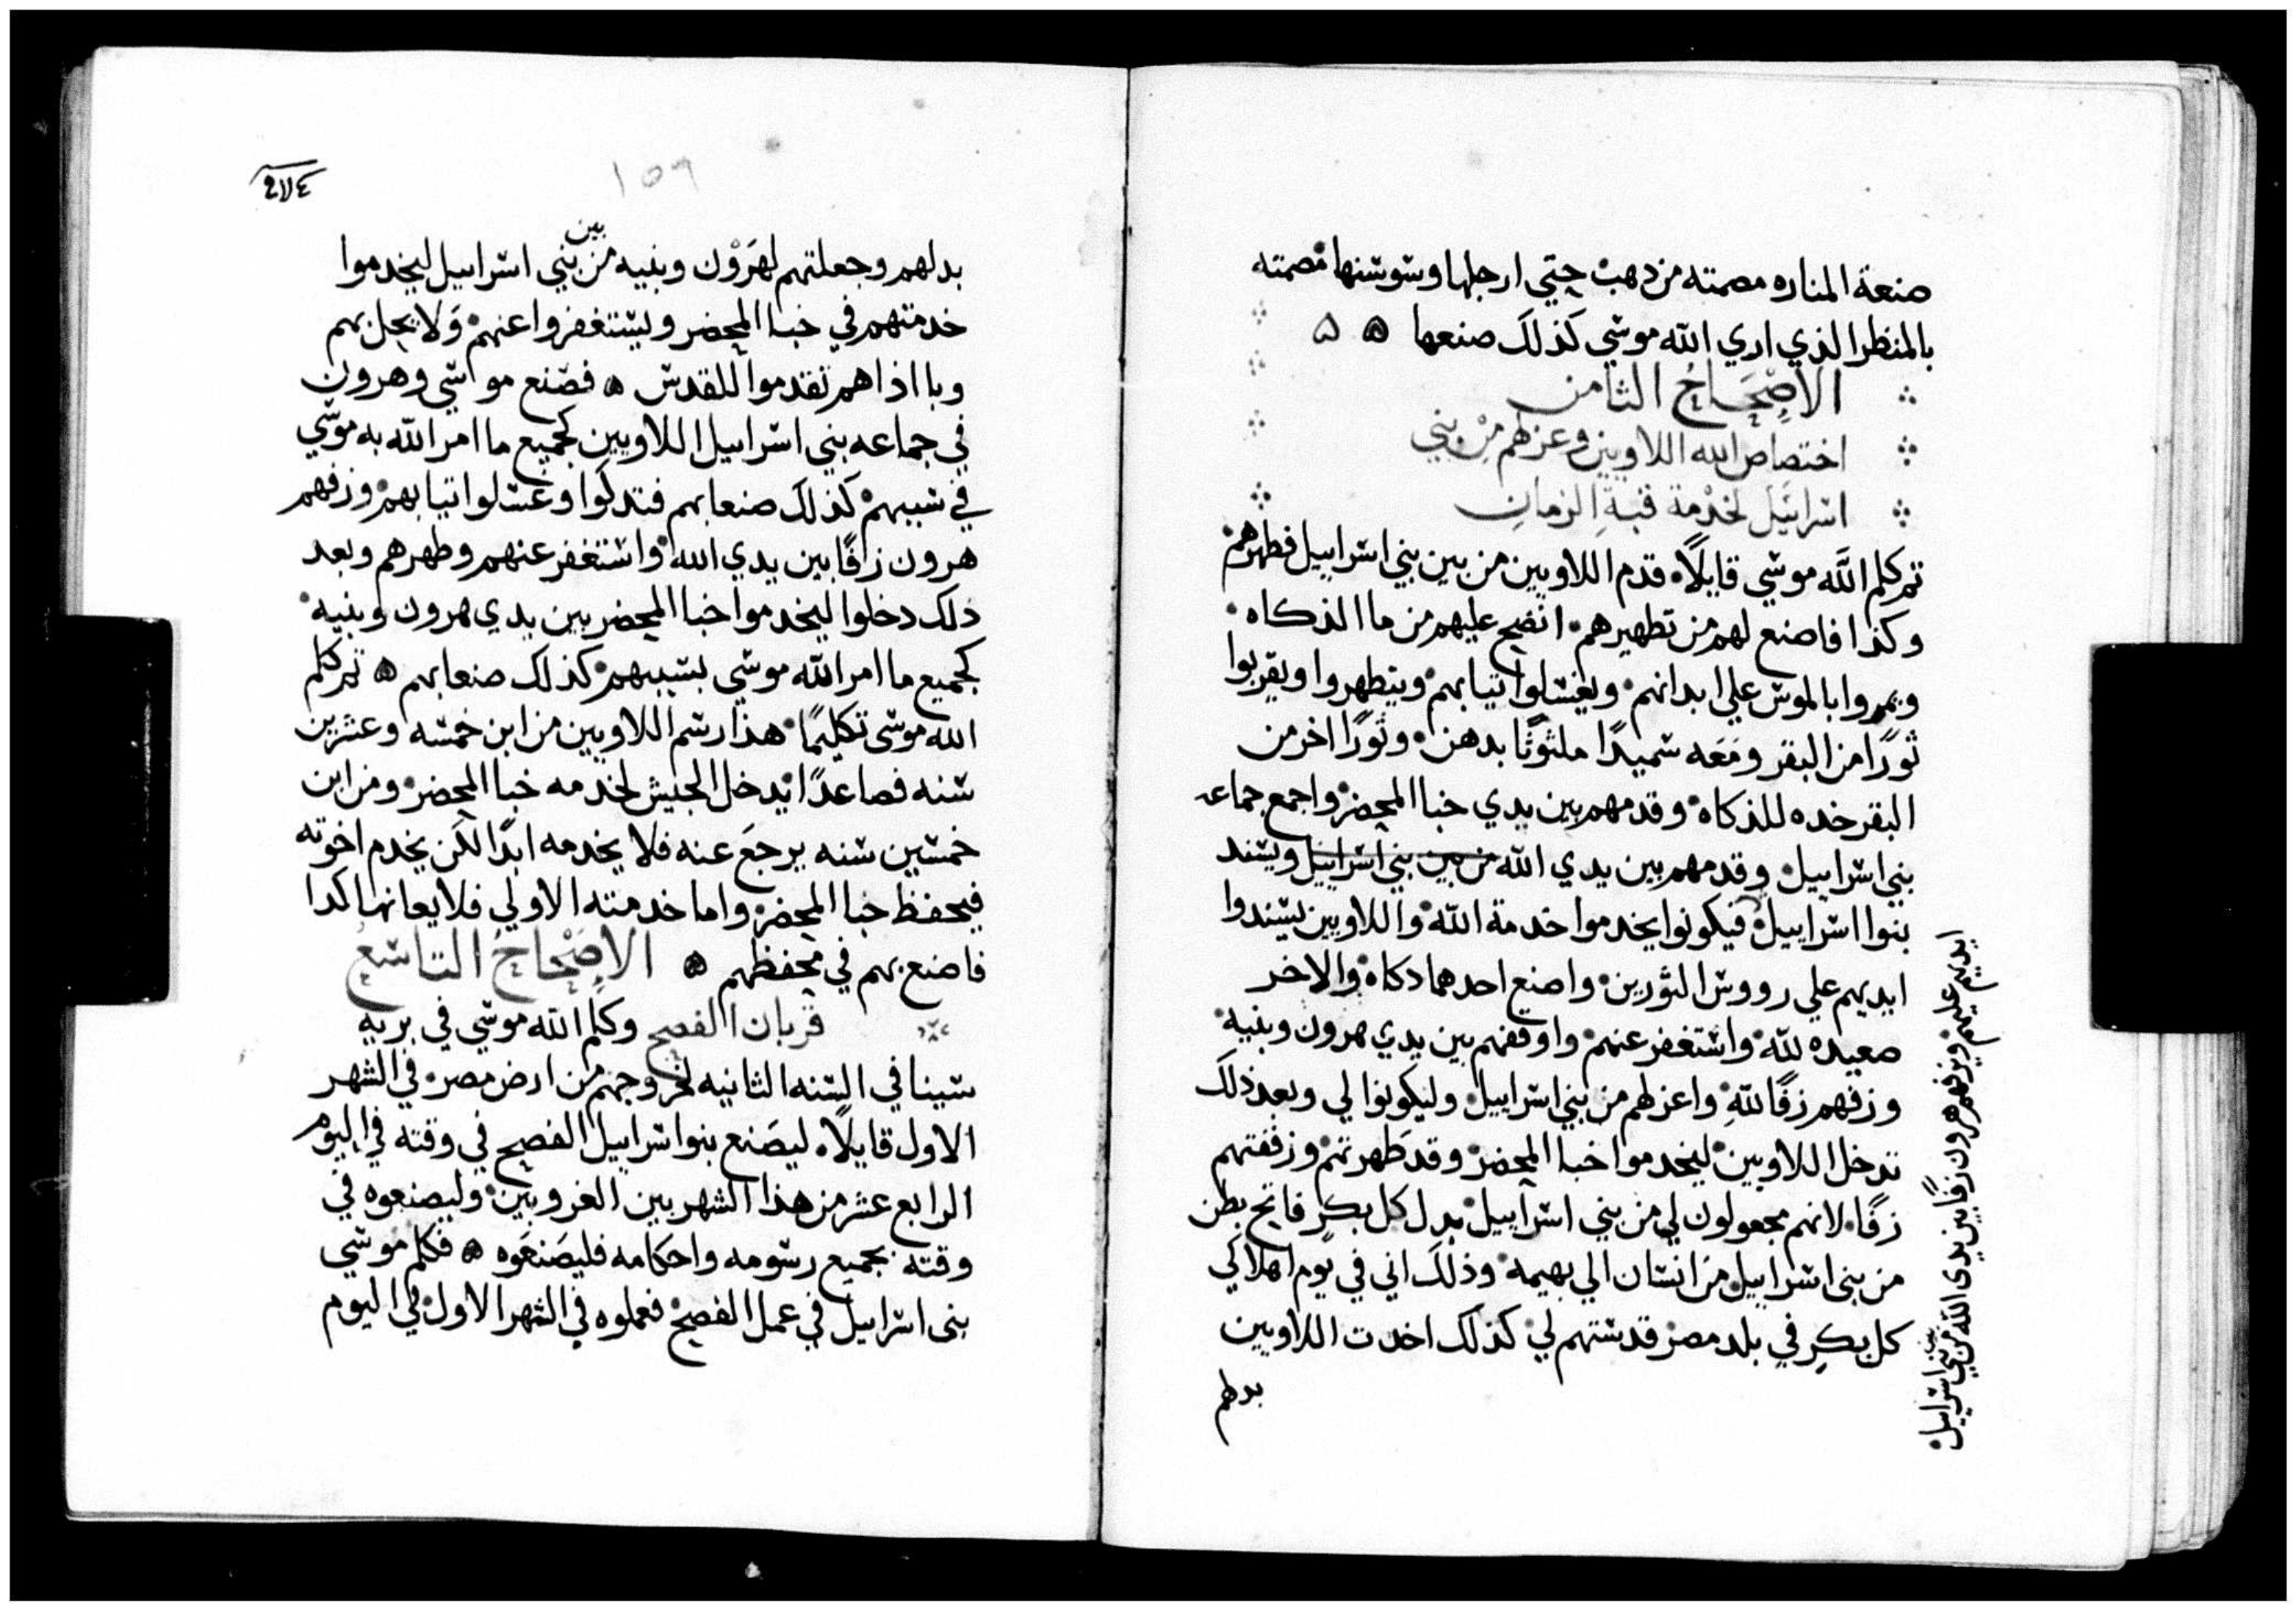 صنعة المناره مصمته من دهب حتي ارجلها وسوسنها مصمته
بالمنظر الذي اري الله موسي كذلك صنعها
الاصْحَاحُ الثامن
اختصاص الله اللاويين وعزلهم مِنْ بني
اسرائيل لخدْمة قبةِ الزمانِ
ثم كلم اللَّه موسي قايلًا قدم اللاويين من بين بني اسراييل فطهرهم
وكذا فاصنع لهم من تطهيرهم انضح عليهم من ما الذكاه
ويمروا بالموس علي ابدانهم ويغسلوا تيابهم ويتطهروا ويقربوا
ثورًا من البقر ومَعَه سميدًا ملثوثًا بدهن وثورًا اخر من
البقر خده للذكاه وقدمهم بين يدي خبا المحضر واجمع جماعه
بني اسراييل وقدمهم بين يدي الله من بين بني اسراييل ويسند
بنوا اسراييل فيكونوا يخدموا خدمة الله واللاويين يسندوا
ايديهم علي رووس الثورين واصنع احدهما دكاه والاخر
صعيده للَّه واستغفر عنهم واوقفهم بين يدي هرون وبنيه
وزفهم زفًا للَّهِ واعزلهم من بني اسراييل وليكونوا لي وبعد ذلكَ
تدخل اللاويين ليخدموا خبا المحضر وقد طهرتهم وزففتهم
زفًا لانهم مجعولون لي من بني اسراييل بدل كل بكرٍ فاتح بطن
من بنى اسراييل من انسان الي بهيمه وذلك اني في يوم اهلاكي
كل بكرٍ في بلد مصر قدستهم لي كذلك اخدت اللاويين
بدلهم
ايديهم عليهم ويزفهم هرون زفًا بين يدى الله من بين بني اسراييل
٢٧٤
١٥٦
بدلهم وجعلتهم لهَرَوْن وبنيه من بين بني اسراييل ليخدموا
خدمتهم في خبا المحضر ويستغفروا عنهم وَلا يحل بهم
وبا اذا هم تقدموا للقدس فصنع موسي وهرون
في جماعه بني اسراييل اللاويين كجميع ما امر اللّه به موسي
في سببهم كذلك صنعا بهم فتدكوا وغسلوا تيابهم وزفهم
هرون زفًا بين يدي الله واستغفر عنهم وطهرهم وبعد
ذلك دخلوا ليخدموا خبا المحضر بين يدي هرون وبنيه
كجميع ما امر اللّه موسي بسببهم كذلك صنعا بهم ثم كلم
الله موسى تكليمًا هذا رسم اللاويين من ابن خمسه وعشرين
سنه فصاعدًا يدخل الجيش لخدمه خبا المحضر ومن ابن
خمسين سنه يرجعَ عنه فلا يخدمه ابدًا لكن يخدم اخوته
فيحفظ خبا المحضر واما خدمته الاولي فلا يعانها كدا
فاصنع بهم في محفظهم الاصْحاحُ التاسعُ
قربان الفصح وكلم اللّه موسي في بريه
سينا في السنه الثانيه لخروجهم من ارض مصر في الشهر
الاول قايلًا ليصَنع بنوا سراييل الفصح في وقته في اليوم
الرابع عشر من هذا الشهر بين الغروبين وليصنعوه في
وقته بجميع رسومه واحكامه فليصَنعَوه فكلم موسي
بنى اسراييل في عمل الفصح فعملوه في الشهر الاول في اليوم